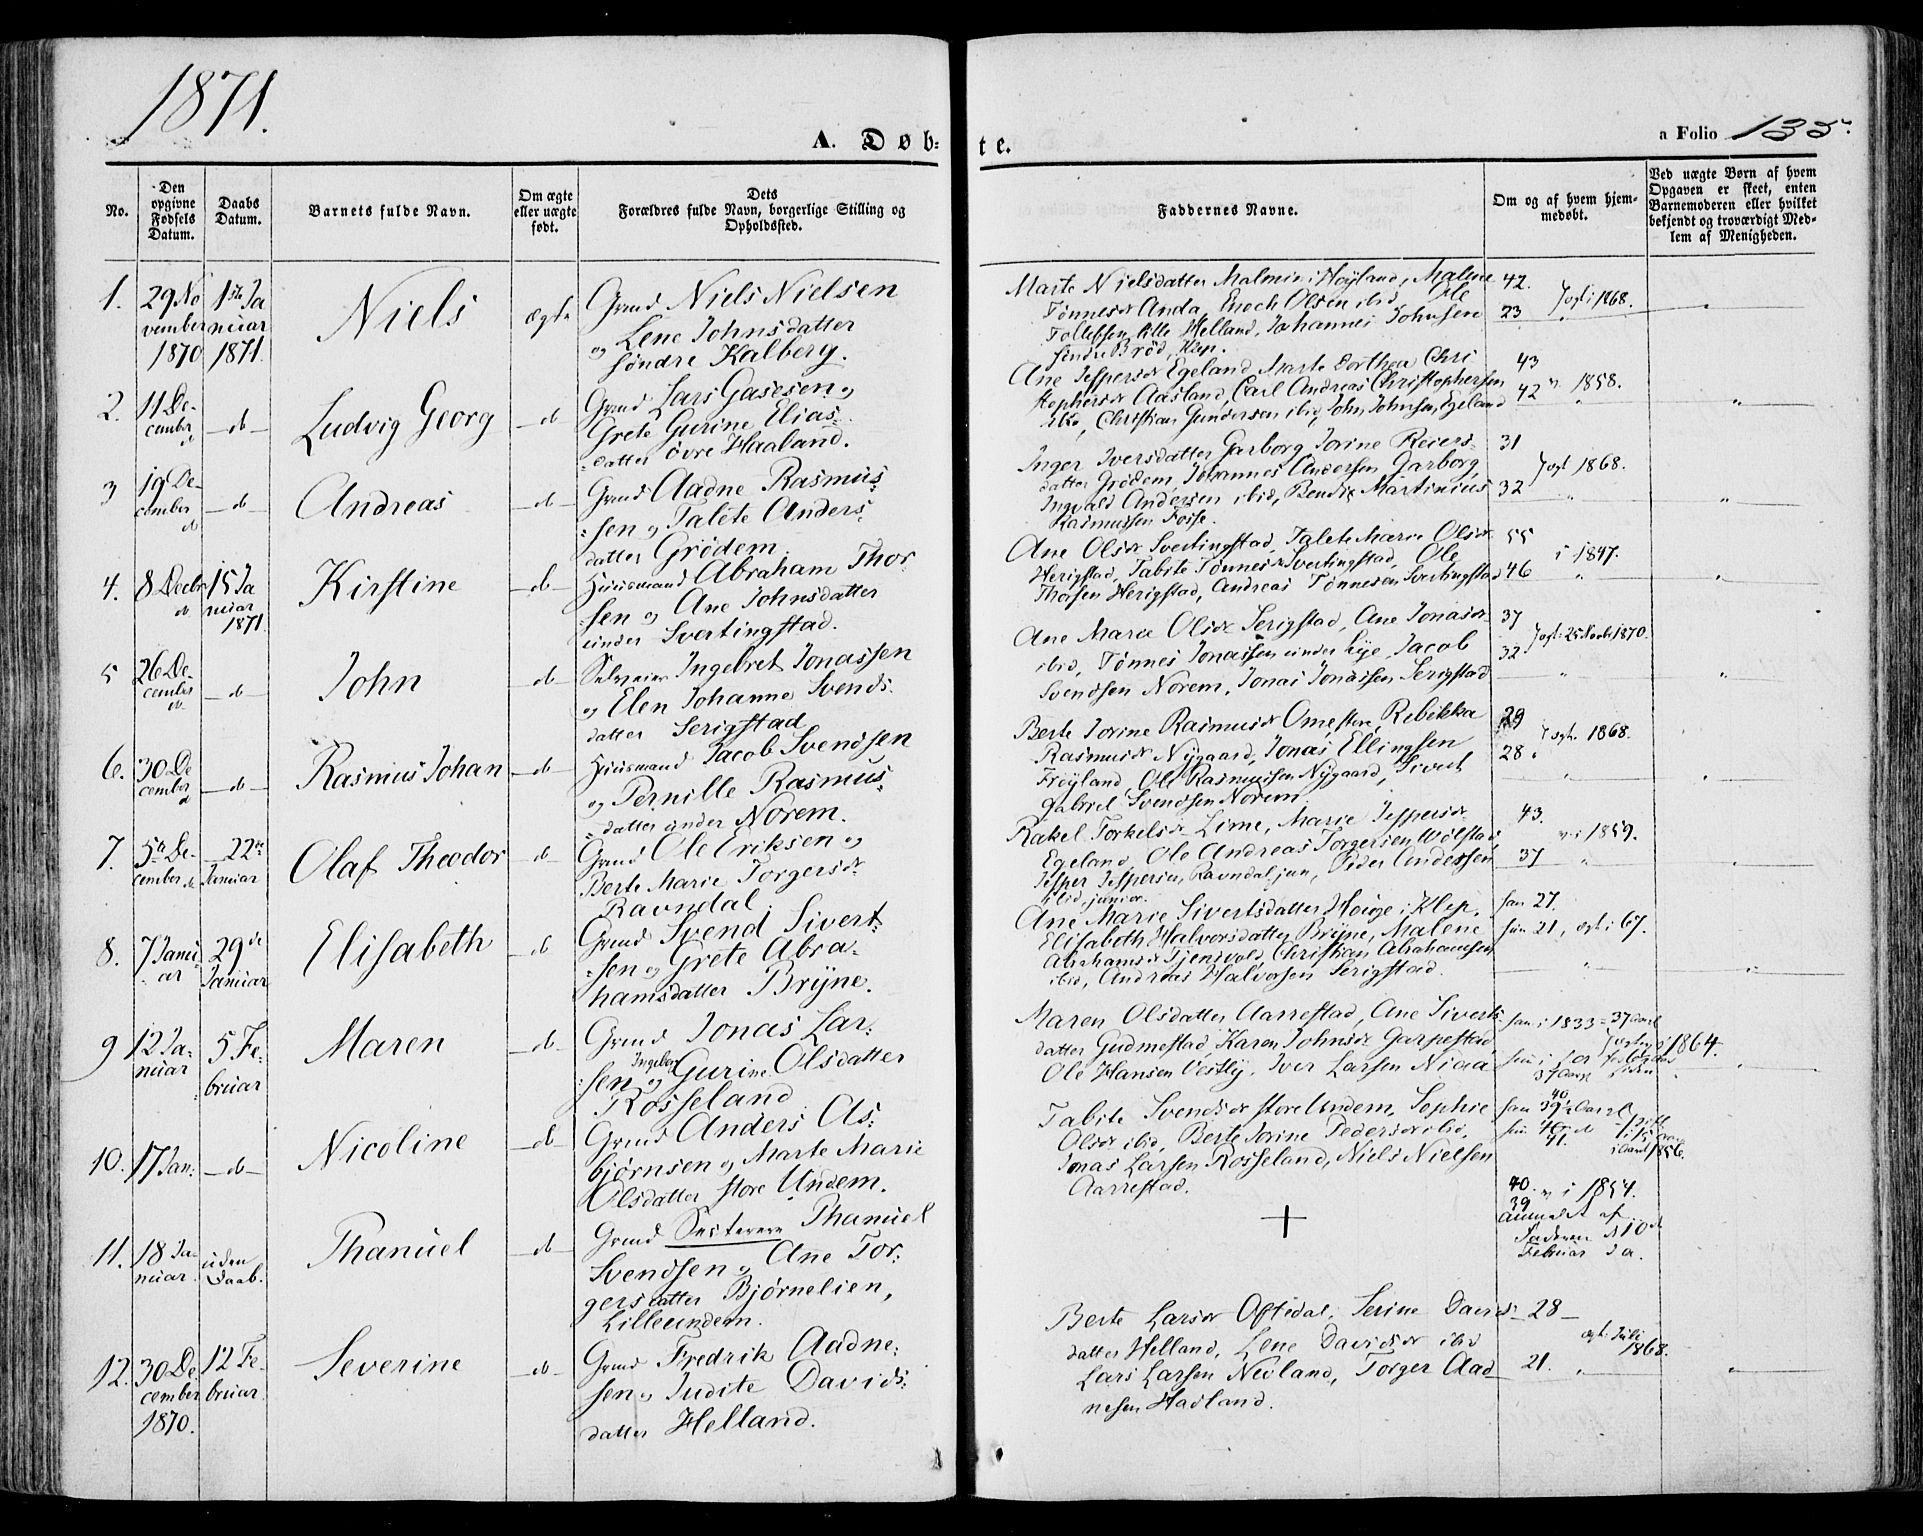 1871.
A. Døb-
te.
a Folio 135.
No.
Den opgivne Fødsels Datum.
Daabs Datum.
Barnets fulde Navn.
Om ægte eller uægte født.
Dets Forældres fulde Navn, borgerlige Stilling og Opholdssted.
Faddernes Navne.
Om og af hvem hjemmedøbt.
Ved uægte Børn af hvem Opgaven er skeet, enten Barnemoderen eller hvilket bekjendt og troværdigt Medlem af Menigheden.
1.
29 No
vember
1870
1ste Ja
nuar
1871.
Niels
ægte
Grmd Niels Nielsen
og Lene Johnsdatter
søndre Kalberg.
Marte Nielsdatter Malmin i Høyland, Malene
Tønnesdr Anda, Enoch Olsen ibid, Ole
Tollefsen lille Helland, Johannes Johnsen
søndre Brød, Klep.
42.
23
ogt i 1868.
2.
11 De-
cember
d
-d-
Ludvig Georg
-d-
Grmd Lars Gasesen og
Grete Gurine Elias-
datter øvre Haaland.
Ane Jespersdr Egeland, Marte Dorthea Chri
stophersdr Aasland, Carl Andreas Christophersen
ibid, Christian Gundersen ibid, John Johnsen, Egeland
43
42
1858.
3
19 De-
cember
d
-d-
Andreas
-d-
Grmd Aadne Rasmus-
sen og Talete Anders-
datter Grødem.
Inger Iversdatter Garborg, Jorine Reiers-
datter Grødem, Johannes Andersen Garborg,
Ingvald Andersen ibid, Bendix Martinius
Rasmussen Fosse.
31
32
ogt 1868.
4.
8 Decbr
d
15 Ja
nuar
1871
Kirstine
-d-
Huusmand Abraham Thor
sen og Ane Johnsdatter
under Svertingstad.
Ane Olsdr Svertingstad, Talete Marie Olsdr
Herigstad, Tabite Tønnesdr Svertingstad, Ole
Thorsen Herigstad, Andreas Tønnesen Svertingstad
55
46
i 1847.
5
26 De-
cember
d.
-d-
John
-d-
Selveier Ingebret Jonassen
og Elen Johanne Svends-
datter Serigstad
Ane Marie Olsdr Serigstad, Ane Jonasdr
ibid, Tønnes Jonassen under Lye, Jacob
Svendsen Norem, Jonas Jonassen Serigstad
37
32
ogt i 25 Novbr 1870.
6.
30 De
cember
d
-d-
Rasmus Johan
-d-
Huusmand Jacob Svendsen
og Pernille Rasmus-
datter under Norem.
Berte Jorine Rasmusdr Ome store, Rebekka
Rasmusdr Nygaard, Jonas Ellingsen
Frøyland, Ole Rasmussen Nygaard, Sivert
Gabriel Svendsen Norem.
29
28
ogt. 1868.
7.
5te De-
cember d.
22de
Januar
Olaf Theodor
-d-
Grmd Ole Eriksen og
Berte Marie Torgersdr
Ravndal.
Rakel Torkelsdr Lime, Marie Jespersdr
Egeland, Ole Andreas Torgersen Wølstad,
Jesper Jespersen Ravndal jun, Peder Andersen
ibid, junior.
43.
37
i 1859.
8.
7 Janu-
ar
29de
Januar
Elisabeth
-d-
Grmd Svend Sivert-
sen og Grete Abra-
hamsdatter Bryne.
Ane Marie Sivertsdatter Houge i Klep,
Elisabeth Halvorsdatter Bryne, Malene
Abrahamsdr Tjensvold, Christian Abrahamsen
ibid, Andreas Halvorsen Serigstad.
han 27.
hun 21, ogt i 67.
9
12 Ja-
nuar
5 Fe-
bruar
Maren
-d-
Grmd Jonas Lar-
sen og Ingebor Gurine Olsdatter
Rosseland
Maren Olsdatter Aarrestad, Ane Siverts-
datter Gudmestad, Karen Johnsdr Garpestad
Ole Hansen Vestly, Iver Larsen Niaa
han i 1833 = 37 Aar
1864.
10.
17 Jan.
-d-
Nicoline
-d-
Grmd Anders As-
bjørnsen og Marte Marie
Olsdatter store Undem.
Tabite Svendsdr store Undem, Sophie
Olsdr ibid, Berte Jorine Pedersdr ibid,
Jonas Larsen Rosseland, Niels Nielsen
Aarrestad.
40
1856.
40.
39
i 1857.
11.
18 Ja-
nuar
uden
Daab.
Thanuel
-d-
Grmd Thanuel
Svendsen og Ane Tor-
gersdatter Bjørnelien,
Lilleundem.
+
anmeldt af
Faderen d 10d
Februar d a.
12.
30 De
cember
1870.
12 Fe-
bruar.
Severine
-d-
Grmd Fredrik Aadne-
sen og Judite Davids-
datter Helland.
Berte Larsdr Oftedal, Serine Davids-
datter Helland, Lene Davidsdr ibid
Lars Larsen Neiland, Torger Aad
nesen Hadland.
28-
21.
ogt. Juli
1868.